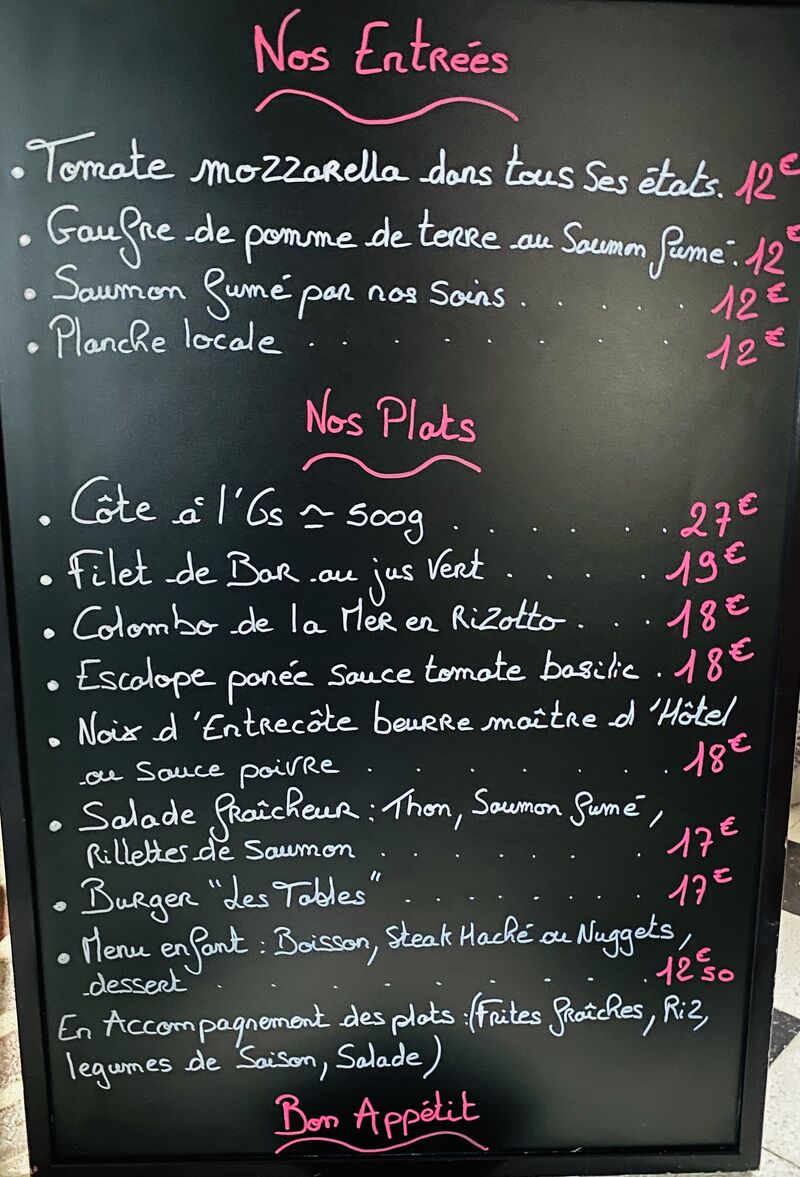 Nos Entrées
• Tomate mozzarella dans tous ses états. 12€
• Gaufre de pomme de terre au Saumon fumé. 12€
• Saumon fumé par nos soins . . . . . 12€
• Planche locale . . . . . . . . 12€
Nos Plats
• Côte à l'Os ≃ 500g . . . . . . 27€
• Filet de Bar au jus Vert . . . . . 19€
• Colombo de la Mer en Rizotto . . . 18€
• Escalope panée sauce tomate basilic . 18€
• Noix d'Entrecôte beurre maître d'Hôtel
ou sauce poivre . . . . . . . 18€
• Salade fraîcheur : Thon, Saumon fumé,
Rillettes de saumon . . . . . . 17€
• Burger "Les Tables" . . . . . . . 17€
• Menu enfant : Boisson, Steak Haché ou Nuggets,
dessert . . . . . . . . . 12€50
En Accompagnement des plats : (Frites fraîches, Riz,
legumes de Saison, Salade)
Bon Appétit